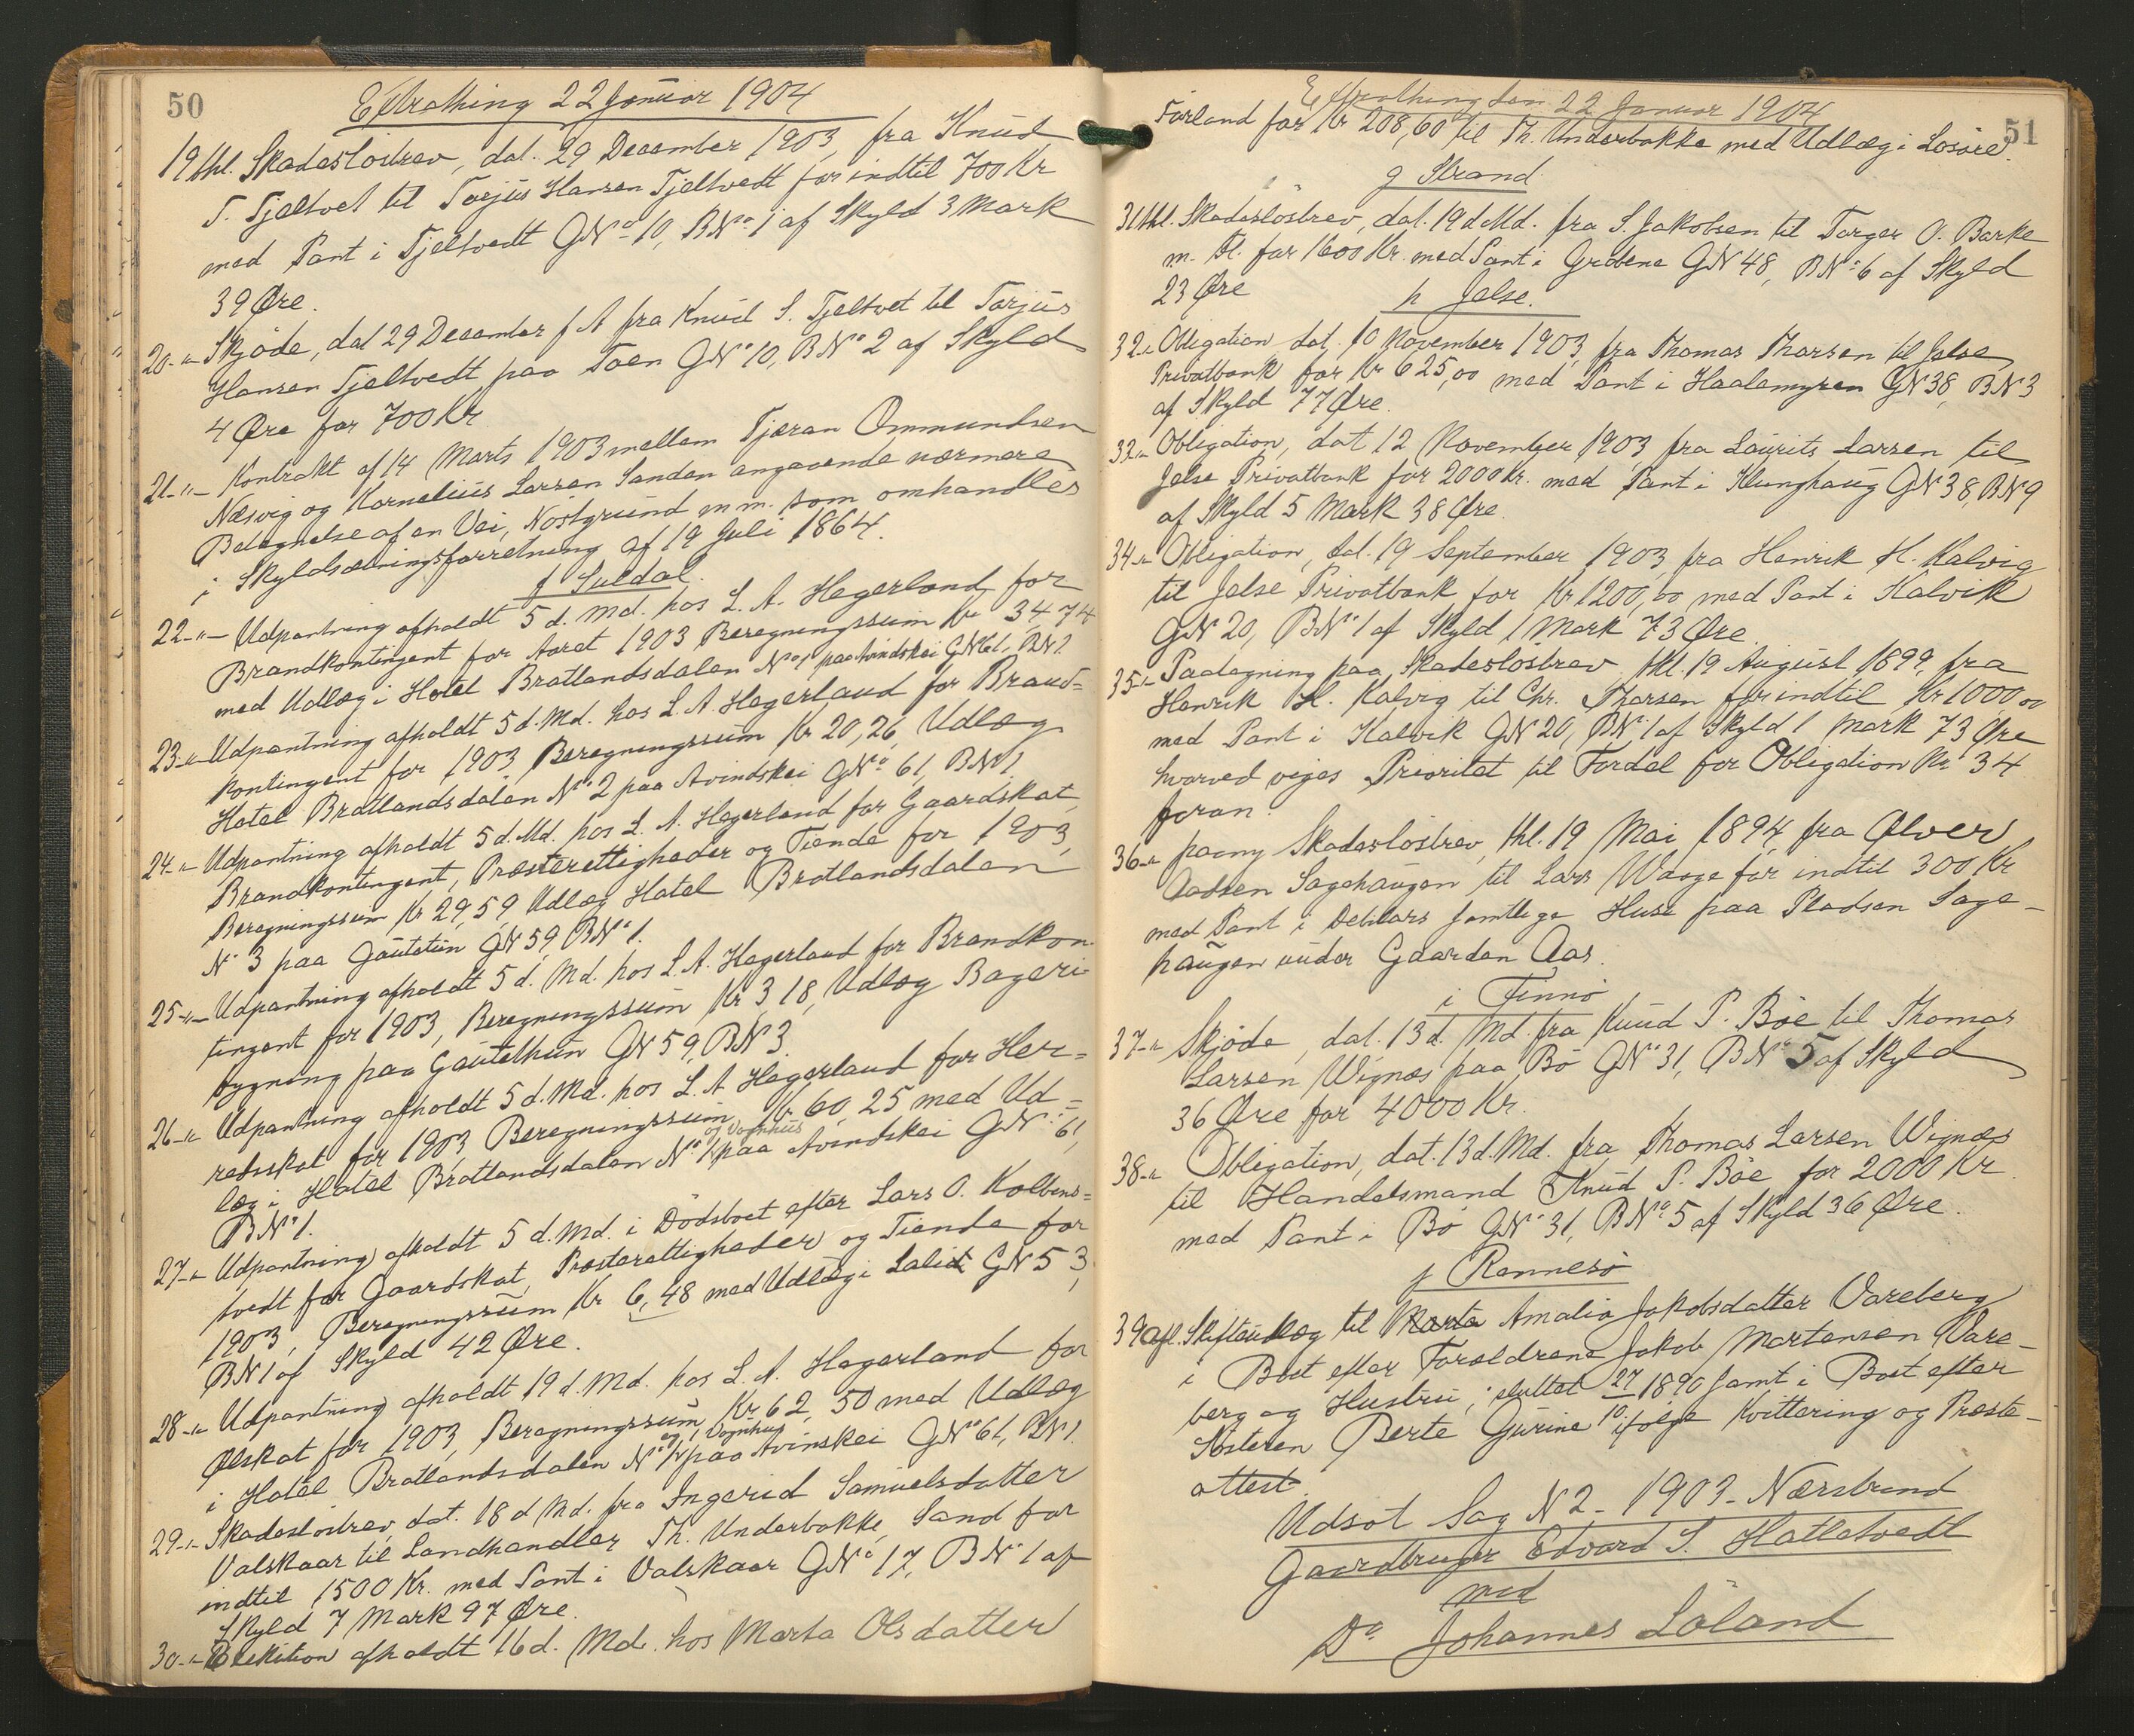 50
Extrathing 22 Januar 1904
19 thl. Skadeslösbrev, dat. 29 December 1903, fra Knud
T. Tjeltvet til Torjus Hansen Tjeltvedt for indtil 700 Kr
med Pant i Tjeltvedt GNo 10, BNo 1 af Skyld 3 Mark
39 Øre.
20-"- Skjöde, dat 29 December f A fra Knud S. Tjeltvet til Torjus
Hansen Tjeltvedt paa Toen GNo 10, BNo 2 af Skyld
4 Øre for 700 Kr
21-"- Kontrakt af 14 Marts 1903 mellem Tjeran Ommundsen
Næsvig og Kornelius Larsen Sanden angaaende nærmere
Betegnelse af en Vei, Nöstgrund m m. som omhandles
i Skyldsætningsforretning af 19 Juli 1864.
f Suldal.
22-"- Udpantning afholdt 5 d. Md. hos L. A. Hegerland for
Brandkontingent for Aaret 1903 Beregningssum Kr 34,74
med Udlæg i Hotel Bratlandsdalen No 1 paa Avindskei GN 61, BN 1
23-"- Udpantning afholdt 5 d. Md. hos L. A. Hegerland for Brand=
kontingent for 1903, Beregningssum Kr 20,26, Udlæg
Hotel Bratlandsdalen No 2 paa Avindskei GNo 61, BN 1
24-"- Udpantning afholdt 5 d. Md. hos L. A. Hegerland for Gaardskat,
Brandkontingent, Præsterettigheder og Tiende for 1903,
Beregningssum Kr 29,59 Udlæg Hotel Bratlandsdalen
No 3 paa Gautetun GN 59, BNo 1.
25-"- Udpantning afholdt 5 d. Md. hos L. A. Hegerland for Brandkon-
tingent for 1903, Beregningssum Kr 3,18, Udlæg Bageri-
bygning paa Gautethun GN 59, BN 3.
26-"- Udpantning afholdt 5 d. Md. hos L. A Hegerland for Her=
redsskat for 1903, Beregningssum Kr 60,25 med Ud=
læg i Hotel Bratlandsdalen No 1 og Vognhus paa Avindskei GNo 61,
BNo 1.
27-"- Udpantning afholdt 5 d. Md. i Dödsboet efter Lars O. Kolbens=
tvedt for Gaardskat, Præsterettigheder og Tiende for
1903, Beregningssum Kr 6,48 med Udlæg i Lalid GN 53,
BN 1 af Skyld 42 Øre.
28-"- Udpantning afholdt 19 d. Md. hos L. A. Hegerland for
Ølskat for 1903, Beregningssum Kr 62,50 med Udlæg
i Hotel Bratlandsdalen No 1 og Vognhus paa Avinskei GNo 61, BN 1.
29-"- Skadeslösbrev, dat. 18 d Md. fra Ingerid Samuelsdatter
Valskaar til Landhandler Th. Underbakke, Sand for
indtil 1500 Kr. med Pant i Valskaar GNo 17, BNo 1 af
Skyld 7 Mark 97 Øre.
30-"- Exekution afholdt 16 d. Md. hos Marta Olsdatter
51
Extrathing den 22 Januar 1904
Förland for Kr 208,60 til Th. Underbakke med Udlæg i Lösöre.
g Strand
31 thl. Skadeslösbrev, dat. 19 d. Md. fra S. Jakobsen til Torger O. Barke
m. fl. for 1600 Kr. med Pant i Grövene GN 48, BNo 6 af Skyld
23 Øre
h Jelse.
32-"- Obligation dat. 10 November 1903, fra Thomas Thorsen til Jelse
Privatbank for Kr 625,00 med Pant i Haalemyren GN 38, BN 3
af Skyld 77 Øre.
33-"- Obligation, dat 12 November 1903, fra Laurits Larsen til
Jelse Privatbank for 2000 Kr. med Pant i Klunghaug GN 38, BN 9
af Skyld 5 Mark 38 Øre.
34-"- Obligation, dat. 19 September 1903, fra Henrik H. Kalvig
til Jelse Privatbank for Kr 1200,00 med Pant i Kalvik
GN 20, BNo 1 af Skyld 1 Mark 73 Øre.
35-"- Paategning paa Skadeslösbrev, thl. 19 August 1899, fra
Henrik H. Kalvig til Chr. Thorsen for indtil Kr 1000,00
med Pant i Kalvik GN 20, BNo 1 af Skyld 1 Mark 73 Øre
hvorved viges Prioritet til Fordel for Obligation No 34
foran.
36-"- paany Skadeslösbrev, thl. 19 Mai 1894, fra Ølver
Aadsen Sagehaugen til Lars Waage for indtil 300 Kr
med Pant i Debitors samtlige Huse paa Pladsen Sage-
haugen under Gaarden Aas.
i Finnö
37-"- Skjöde, dat. 13 d. Md. fra Knud P. Böe til Thomas
Larsen Wignæs paa Bö GNo 31, BNo 5 af Skyld
36 Øre for 4000 Kr.
38-"- Obligation, dat. 13 d. Md. fra Thomas Larsen Wignæs
til Handelsmand Knud P. Böe for 2000 Kr
med Pant i Bö GNo 31, BNo 5 af Skyld 36 Øre.
j Rennesö
39 afl. Skifteudlæg til Marta Amalia Jakobsdatter Vareberg
i Boet efter Forældrene Jakob Mortensen Vare-
berg og Hustru, sluttet 27/10 1890 samt i Boet efter
Søsteren Berte Gurine ifølge Kvittering og Præste-
attest.
Udsat Sag N 2 - 1903 - Nærstrand
Gaardbruger Edvard S. Hatletvedt
med
Do Johannes Löland